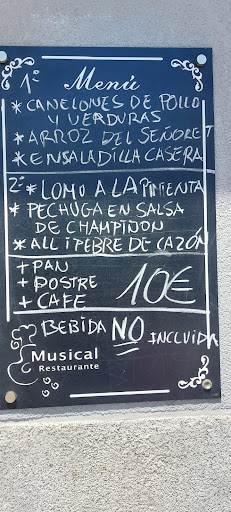 1º Menú
* CANELONES DE POLLO
Y VERDURAS
* ARROZ DEL SEÑORET
* ENSALADILLA CASERA
2º * LOMO A LA PIMIENTA
* PECHUGA EN SALSA
DE CHAMPIÑON
* ALL I PEBRE DE CAZÓN
+ PAN
+ POSTRE
+ CAFE
10€
BEBIDA NO INCLUIDA
Musical
Restaurante